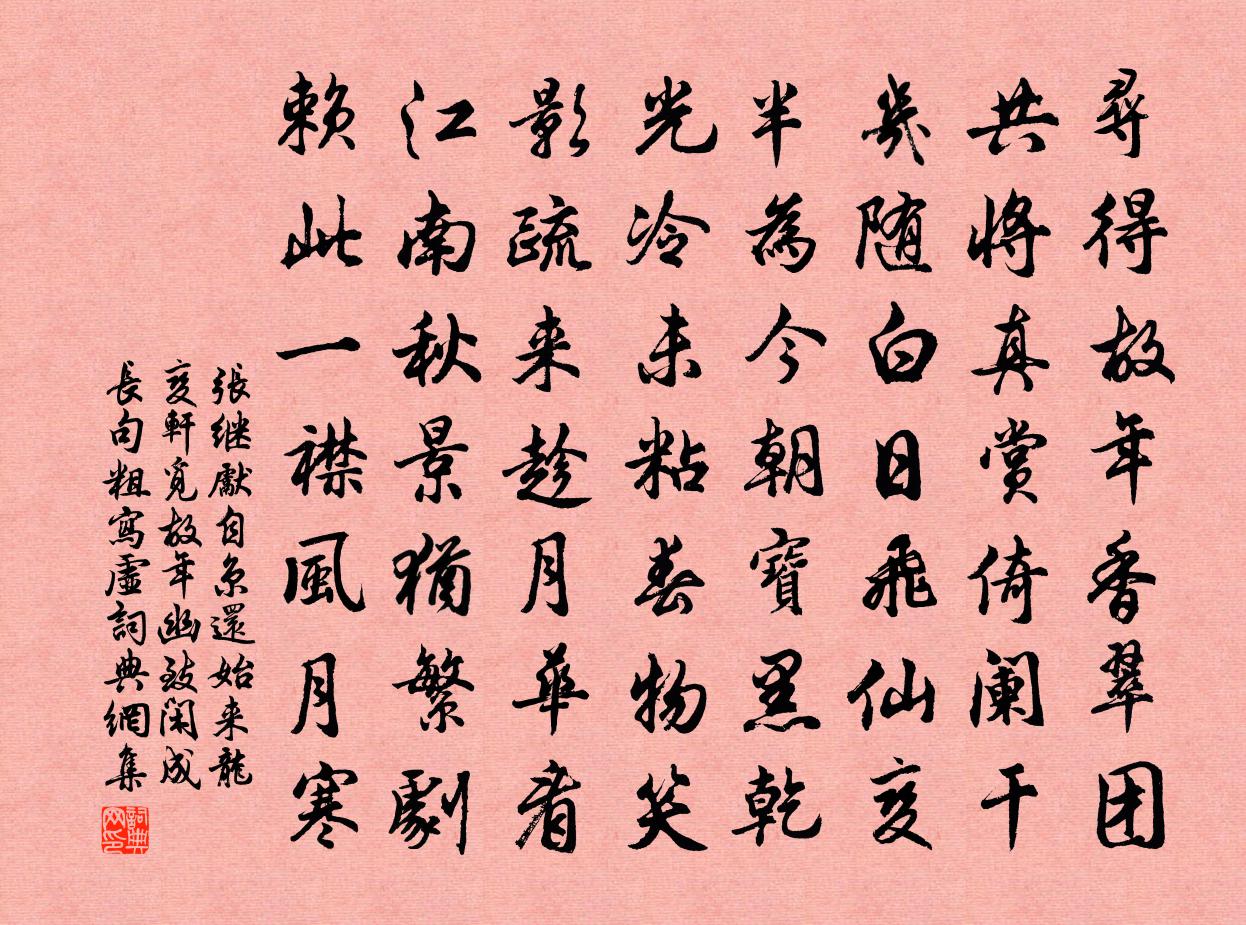 尋得故年香翠团
共將真赏倚阑干
幾随白日飛仙変
半為今朝寶黑乾
光冷未粘春物笑
影疏来趁月華看
江南秋景猶繁劇
賴此一襟風月寒
張继獻自京還始来龍
変軒覓故年幽致闲成
長句粗寫虛詞典網集
詞典网印